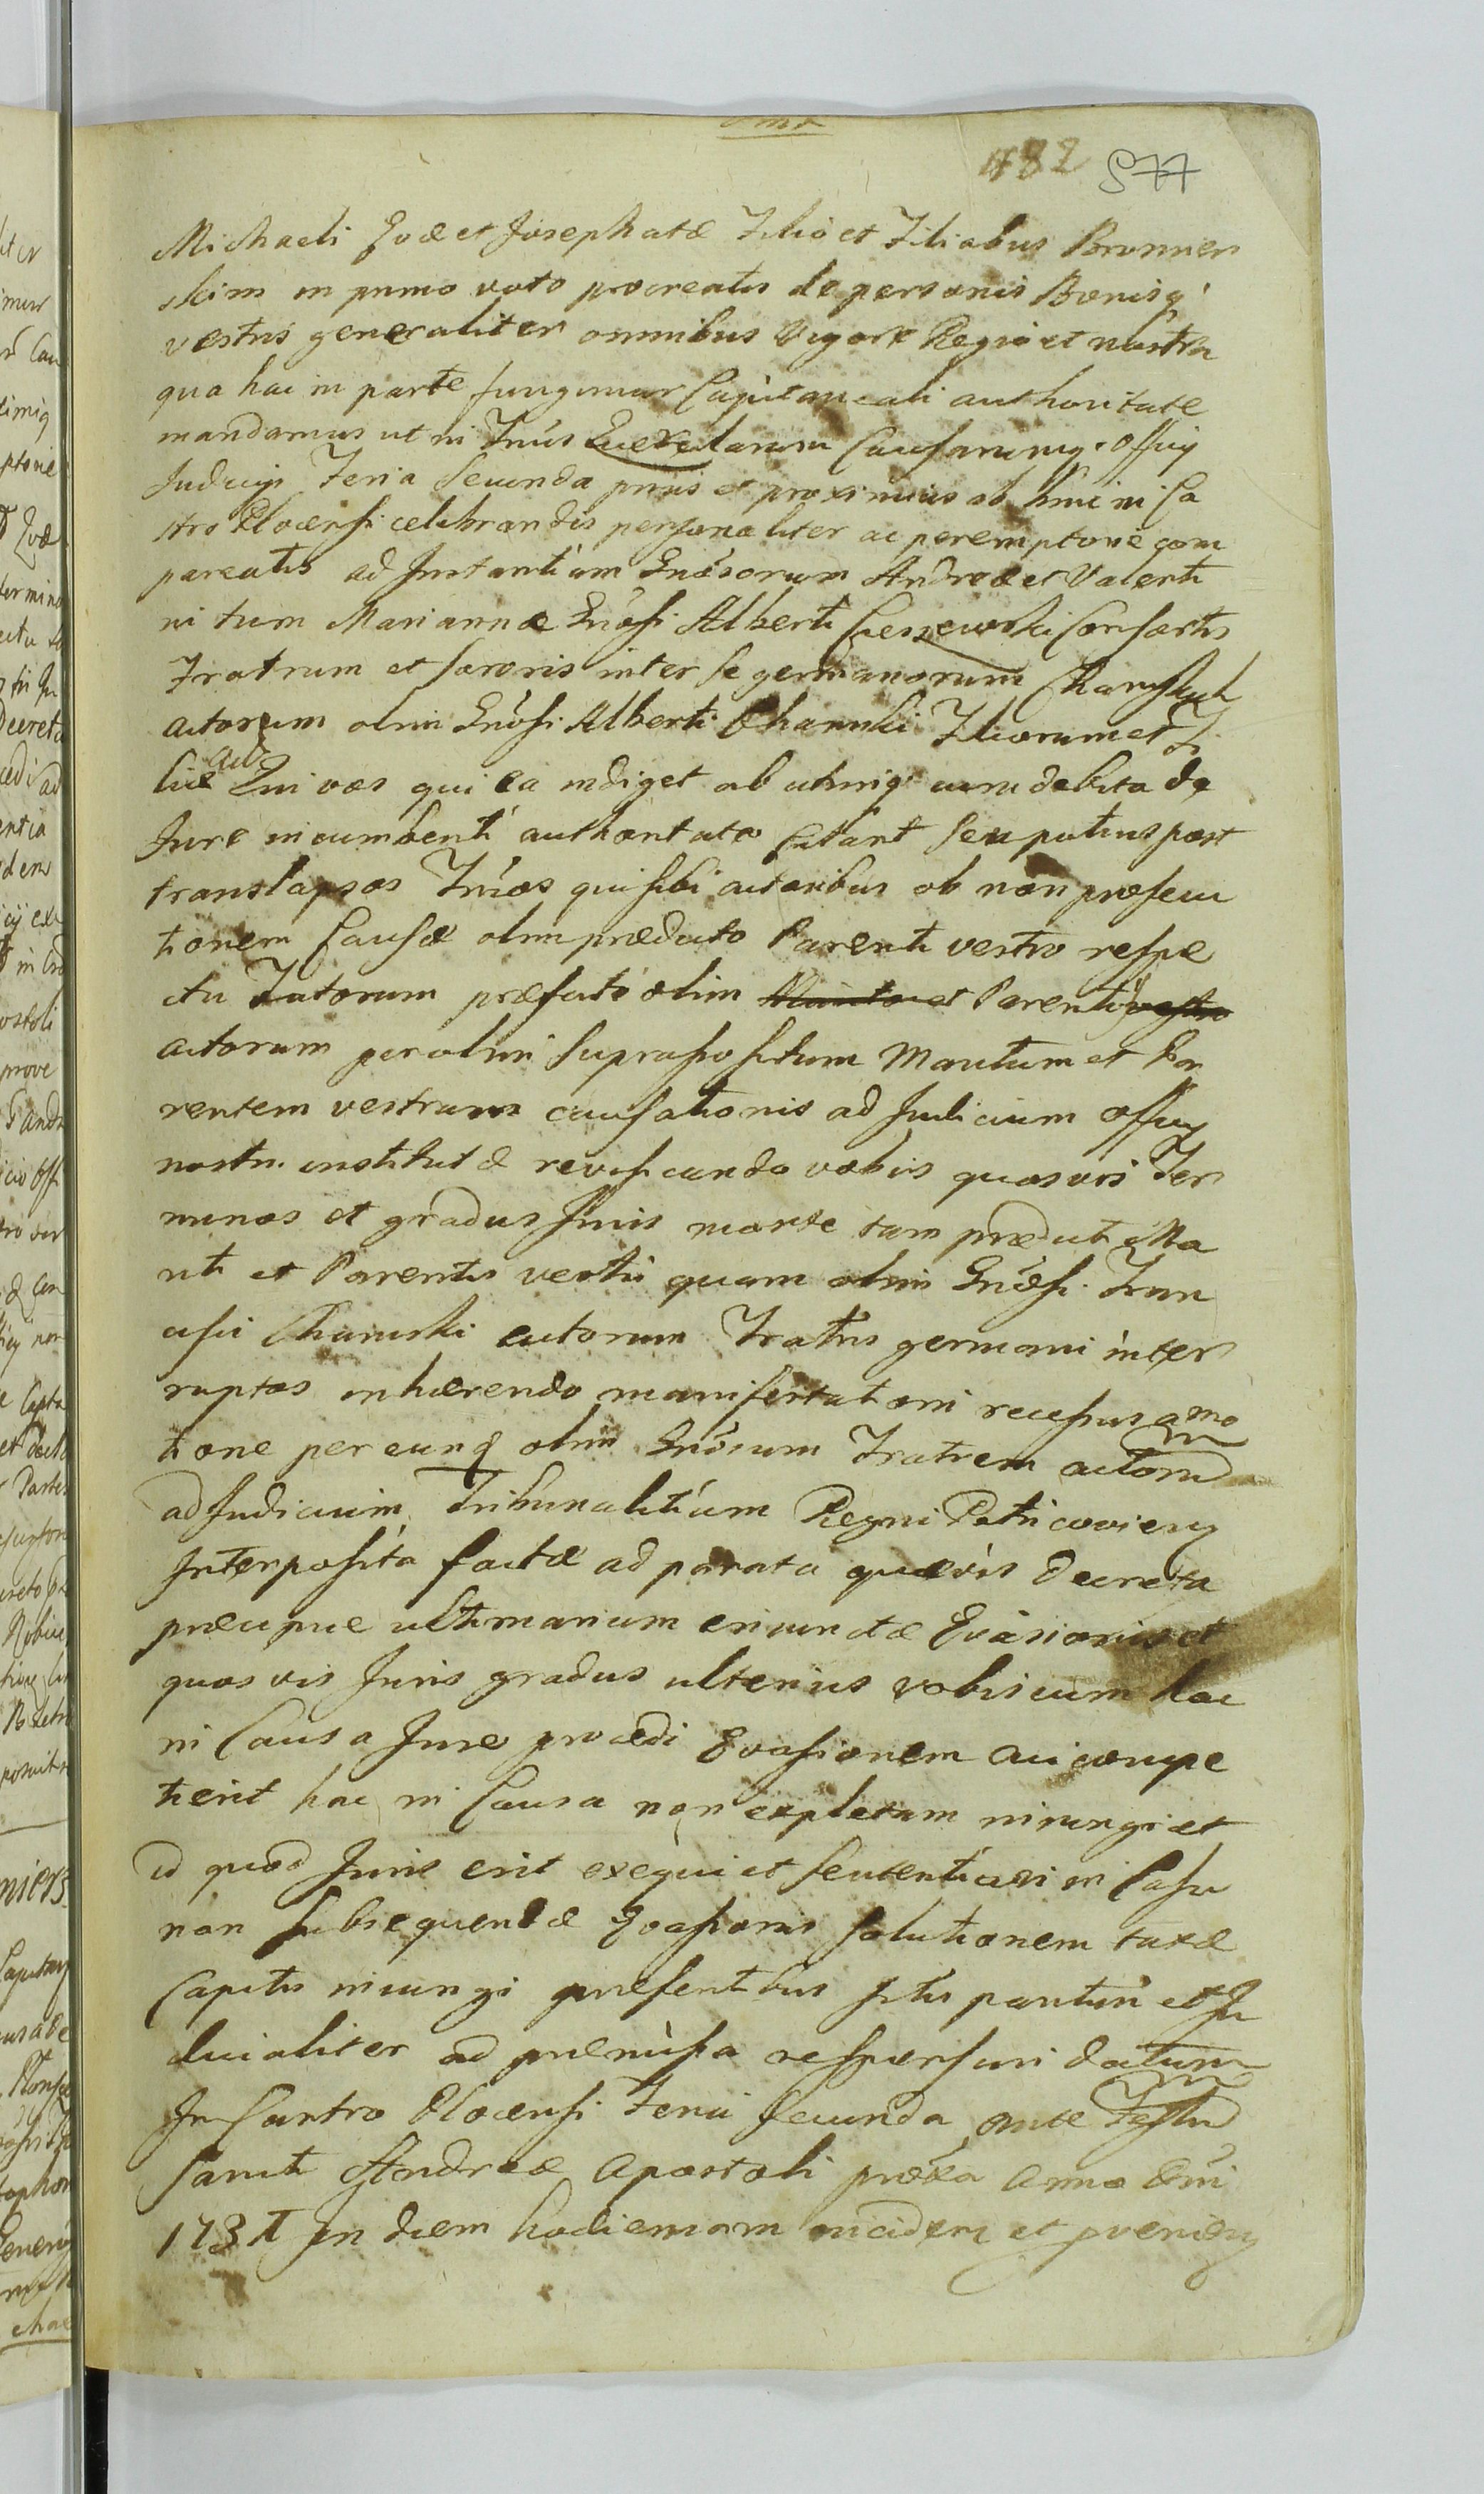 482 577
Michaeli Evæ et Josephatæ Filio et Filiabus Bromier
skim in primo voto procreatis de personis Bonisq
vestris generaliter omnibus Vigore Regia et nostra
qua hac in parte fungimur Capitaneali authoritate
mandamus ut in Tnis Querelarum Causarumq. Officy
Judicys Feria Secunda pmis et proximius ab hinc in Ca
stro Plocensi celebrandis personaliter ac peremptorie com
pareatis ad Instantiam Gnosorum Andreæ et Valenti
ni tum Mariannæ Gnosi Alberti Ciessewski Consortis
Fratrum et Sororis inter se germanorum
actorum olim Gnosi Alberti Chamski Filiorum et Fi
liæ Qui vos qui ea indiget ab utrinq cum debita de
Jure incumbenti authoritate Citant Seu potius post
translapsos Tnos qui sibi actoribus ob non prosecu
tionem Causæ olim prædicto Parenti vestro respe
ctu Tutorum præfati olim Parenti vestro
actorum per olim Suprapositum Maritum et Pa
rentem vestrum causationis ad Judicium Officy
nostri institutæ revificando vobis quosvis Ter
minos et gradus Juris morte tam prædicti Ma
riti et Parentis vestri quam olim Gnosi Fran
cisci Chamski actorum Fratris germani inter
ruptos inhærendo manifestationi recessus a mo
tione per eund olim Gnosum Fratrem actorum
ad Judicium Tribunalitium Regni Petricovien
Interposita factæ ad parata quævis Decreta
præcipue ultimarium eniunctæ Evasionis et
quosvis Juris gradus ulterius vobiscum hac
in Causa Jure procedi Evasionem cui compe
tierit hac in Causa non expletam iniungi et
id quod Juris erit exequi et Sententiari in Casu
non subsequendæ Evasionis solutionem taxæ
Capitis iniungi præsentibus sitis parituri et Ju
dicialiter ad præmissa responsuri datum
In Castro Plocensi Feria Secunda ante Festum
Sancti Andreæ Apostoli proxa Anno Dni
In diem hodiernam inciden et provenien